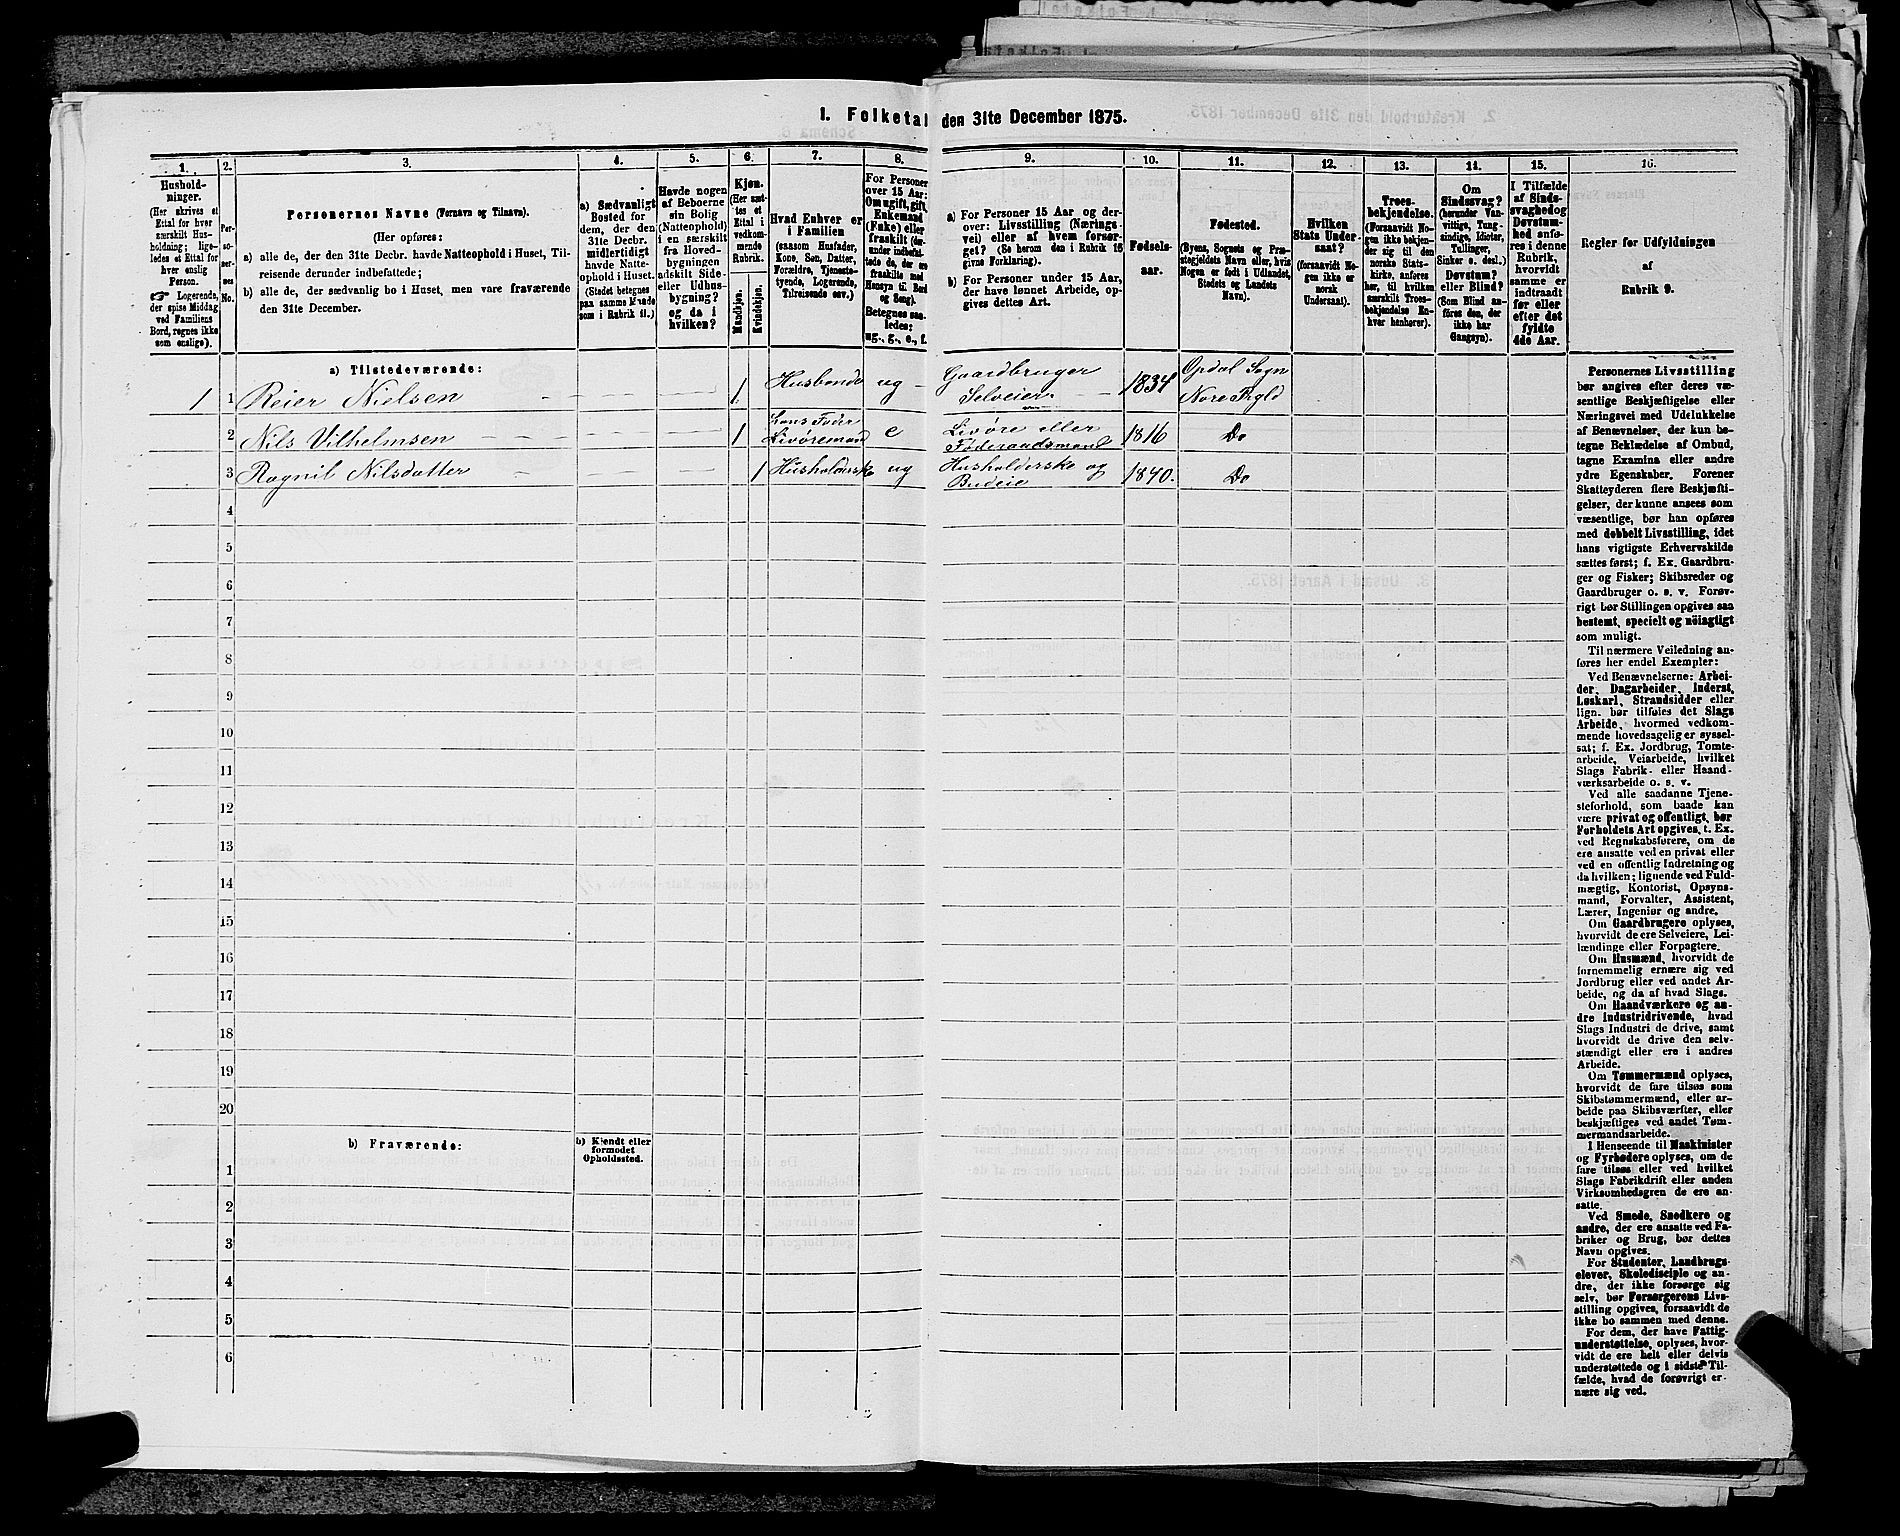 1. Folketal den 31te December 1875.
1. 2. 3. 4. 5. 6. 7. 8. 9. 10. 11. 12. 13. 14. 15. 16.
Hushold-
ninger.
(Her skrives et
Ettal for hver
særskilt Hus-
holdning; lige-
ledes et Ettal for
hver enslig
Person.
☞ Logerende,
der spise Middag
ved Familiens
Bord, regnes ikke
som enslige).
Per-
so-
ner-
nes
No.
Personernes Navne (Fornavn og Tilnavn).
(Her opføres:
a) alle de, der den 31te Decbr. havde Natteophold i Huset, Til-
reisende derunder indbefattede;
b) alle de, der sædvanlig bo i Huset, men vare fraværende
den 31te December.
a) Sædvanligt
Bosted for
dem, der den
31te Decbr.
midlertidigt
havde Natte-
ophold i Huset.
(Stedet betegnes
paa samme Maade
som i Rubrik 11.)
Havde nogen
af Beboerne
sin Bolig
(Natteophold)
i en særskilt
fra Hoved-
bygningen
adskilt Side-
eller Udhus-
bygning?
og da i
hvilken?
Kjøn.
(Her sæt-
tes et
Ettal i
vedkom-
mende
Rubrik.
Mandkjøn.
Kvindekjøn.
Hvad Enhver er
i Familien
(saasom Husfader,
Kone, Søn, Datter,
Forældre, Tjeneste-
tyende, Logerende,
Tilreisende osv.)
For Personer
over 15 Aar:
Om ugift, gift,
Enkemand
(Enke) eller
fraskilt (der-
under indbefat-
tede de, der ere
fraskilte med
Hensyn til Bord
og Seng).
Betegnes saa-
ledes:
ug., g., e., f.
a) For Personer 15 Aar og der-
over: Livsstilling (Nærings-
vei) eller af hvem forsør-
get? (Se herom den i Rubrik 16
givne Forklaring).
b) For Personer under 15 Aar,
der have lønnet Arbeide, op-
gives dettes Art.
Fødsels-
aar.
Fødested.
(Byens, Sognets og Præ-
stegjeldets Navn eller, hvis
Nogen er født i Udlandet,
Stedets og Landets
Navn).
Hvilken
Stats Under-
saat?
(forsaavidt No-
gen ikke er
norsk
Undersaat).
Troes-
bekjendelse.
(Forsaavidt No-
gen ikke bekjen-
der sig til den
norske Stats-
kirke, anføres
her, til hvilken
særskilt Troes-
bekjendelse En-
hver henhører).
Om
Sindssvag?
(herunder Van-
vittige, Tung-
sindige, Idioter,
Tullinger,
Sinker o. desl.)
Døvstum?
eller Blind?
(Som Blind an-
føres den, der
ikke har
Gangsyn).
I Tilfælde
af Sinds-
svaghed og
Døvstum-
hed anfø-
res i denne
Rubrik,
hvorvidt
samme er
indtraadt
før eller
efter det
fyldte
4de Aar.
Regler for Udfyldningen
af
Rubrik 9.
a) Tilstedeværende:
1 1 Reier Nielsen 1 Husbonde ug Gaardbruger Selveier 1834 Opdal Sogn Nore Prgld
2 Nils Vilhelmsen 1 hans Fader Livøremand e Livøre eller Føderaadsmand 1816 Do
3 Ragnil Nilsdatter 1 Husholderske ug Husholderske og Budeie 1840. Do
4
5
6
7
8
9
10
11
12
13
14
15
16
17
18
19
20
b) Fraværende:
b) Kjendt eller
formodet
Opholdssted.
1
2
3
4
5
6
Personernes Livsstilling
bør angives efter deres væ-
sentlige Beskjæftigelse eller
Næringsvei med Udelukkelse
af Benævnelser, der kun be-
tegne Beklædelse af Ombud,
tagne Examina eller andre
ydre Egenskaber. Forener
Skatteyderen flere Beskjæfti-
gelser, der kunne ansees som
væsentlige, bør han opføres
med dobbelt Livsstilling, idet
hans vigtigste Erhvervskilde
sættes først; f. Ex. Gaardbru-
ger og Fisker; Skibsreder og
Gaardbruger o. s. v. Forøv-
rigt bør Stillingen opgives saa
bestemt, specielt og nøiagtigt
som muligt.
Til nærmere Veiledning an-
føres her endel Exempler:
Ved Benævnelserne: Arbei-
der, Dagarbeider, Inderst,
Løskarl, Strandsidder eller
lign. bør tilføies det Slags
Arbeide, hvormed vedkom-
mende hovedsagelig er syssel-
sat; f. Ex. Jordbrug, Tomte-
arbeide, Veiarbeide, hvilket
Slags Fabrik- eller Haand-
værksarbeide o. s. v.
Ved alle saadanne Tjene-
steforhold, som baade kan
være privat og offentligt, bør
Forholdets Art opgives, t. Ex.
ved Regnskabsførere, om de
ere ansatte ved en privat eller
ved en offentlig Indretning og
da hvilken; lignende ved Fuld-
mægtig, Kontorist, Opsyns-
mand, Forvalter, Assistent,
Lærer, Ingeniør og andre.
Om Gaardbrugere oplyses,
hvorvidt de ere Selveiere, Lei-
lændinge eller Forpagtere.
Om Husmænd, hvorvidt de
fornemmelig ernære sig ved
Jordbrug eller ved andet Ar-
beide, og da af hvad Slags.
Om Haandværkere og an-
dre Industridrivende, hvad
Slags Industri de drive, samt
hvorvidt de drive den selv-
stændigt eller ere i andres
Arbeide.
Om Tømmermænd oplyses,
hvorvidt de fare tilsøs som
Skibstømmermænd, eller ar-
beide paa Skibsværfter, eller
beskjæftiges ved andet Tøm-
mermandsarbeide.
I Henseende til Maskinister
og Fyrbødere oplyses, om de
fare tilsøs eller ved hvilket
Slags Fabrikdrift eller anden
Virksomhedsgren de ere an-
satte.
Ved Smede, Snedkere og
andre, der ere ansatte ved Fa-
briker og Brug, bør dettes
Navn opgives.
For Studenter, Landbrugs-
elever, Skoledisciple og an-
dre, der ikke forsørge sig
selv, bør Forsørgerens Livs-
stilling opgives, forsaavidt de
ikke bo sammen med denne.
For dem, der have Fattig-
understøttelse, oplyses, hvor-
vidt de ere helt eller delvis
understøttede og i sidste Til-
fælde, hvad de forøvrigt er-
nære sig ved.